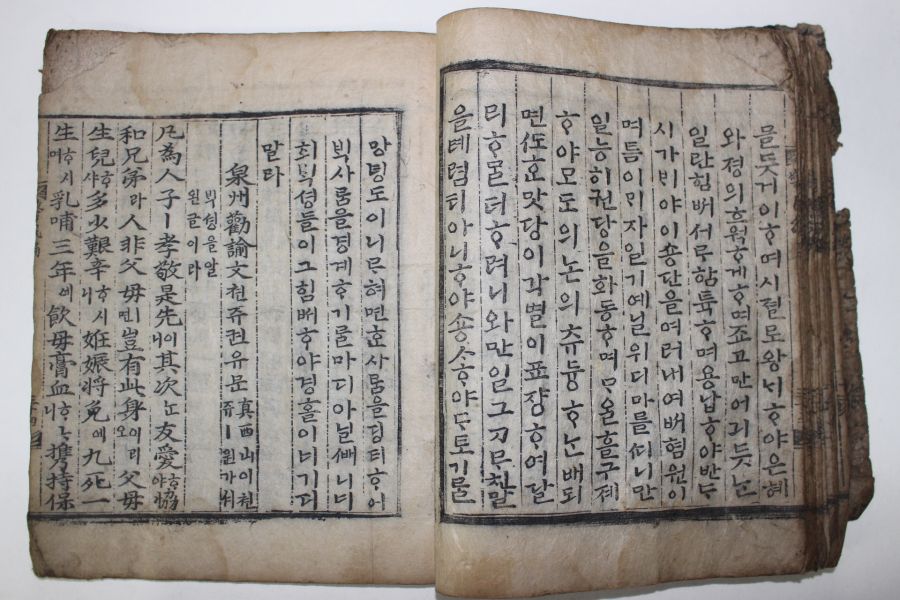 믈듯거이ᄒᆞ며시졀로왕ᄂᆡᄒᆞ야은혜
와졍의흐웡케ᄒᆞ며죠고만어긔ᄂᆞᆫ
일란힘ᄡᅥ서ᄅᆞᄎᆞᆷ ᄒᆞ며용납ᄒᆞ야반ᄃᆞ
시가ᄇᆡ야이숑단을여러내여ᄡᅥ혐원이
며틈이ᄆᆡ자일기예닐위디마를ᄯᅵ니만
일능히권당을화동ᄒᆞ며ᄆᆞᄋᆞᆯ흘구졔
ᄒᆞ야모도의논의츄듕ᄒᆞᄂᆞᆫ배되
면ᄯᅩᄒᆞᆫ맛당이각별이표쟝ᄒᆞ여달
리 ᄒᆞ려니와만일그ᄀᆞᄅᆞ친말
을톄렴티아니ᄒᆞ야숑ᄉᆞᄒᆞ야ᄃᆞ토기ᄅᆞᆯ
망녕도이니ᄅᆞ혀면ᄒᆞᆫ사ᄅᆞᆷ을딩티ᄒᆞ여
ᄇᆡᆨ사ᄅᆞᆷ을경계ᄒᆞ기ᄅᆞᆯ마디아닐ᄯᅢ니너
희ᄇᆡᆨ셩들이그힘ᄡᅥᄒᆞ야경홀이너기디
말라
泉州勸諭文쳔쥬권유문 眞西山이쳔
쥬ㅣ원가셔
ᄇᆡᆨ셩을알
왼글이라
凡為人子ㅣ孝敬是先이니其次ᄂᆞᆫ友愛ᄒᆞ야協
和兄弟라人非父母ㅣ면豈有此身이리오父母
生兒ᄒᆞ샤多少艱辛ᄒᆞ시니姙娠將免에九死一
生ᄒᆞ시며乳哺三年에飮母膏血ᄒᆞᄂᆞ니携持保